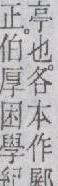 亭也各本作郾
正伯厚困學紀